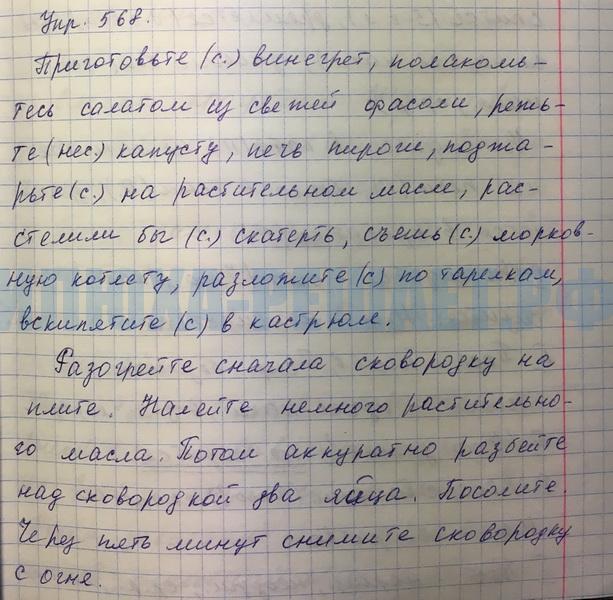 Упр. 568.
Приготовьте (с.) винегрет, полакомь-
тесь салатом из свежей фасоли, режь-
те (нес.) капусту, печь пироги, поджа-
рьте (с.) на растительном масле, рас-
стелили бы (с.) скатерть, съешь (с.) морков-
ную котлету, разложите (с) по тарелкам,
вскипятите (с) в кастрюле.
Разогрейте сначала сковородку на
плите. Налейте немного растительно-
го масла. Потом аккуратно разбейте
над сковородкой два яйца. Посолите.
Через пять минут снимите сковородку
с огня.